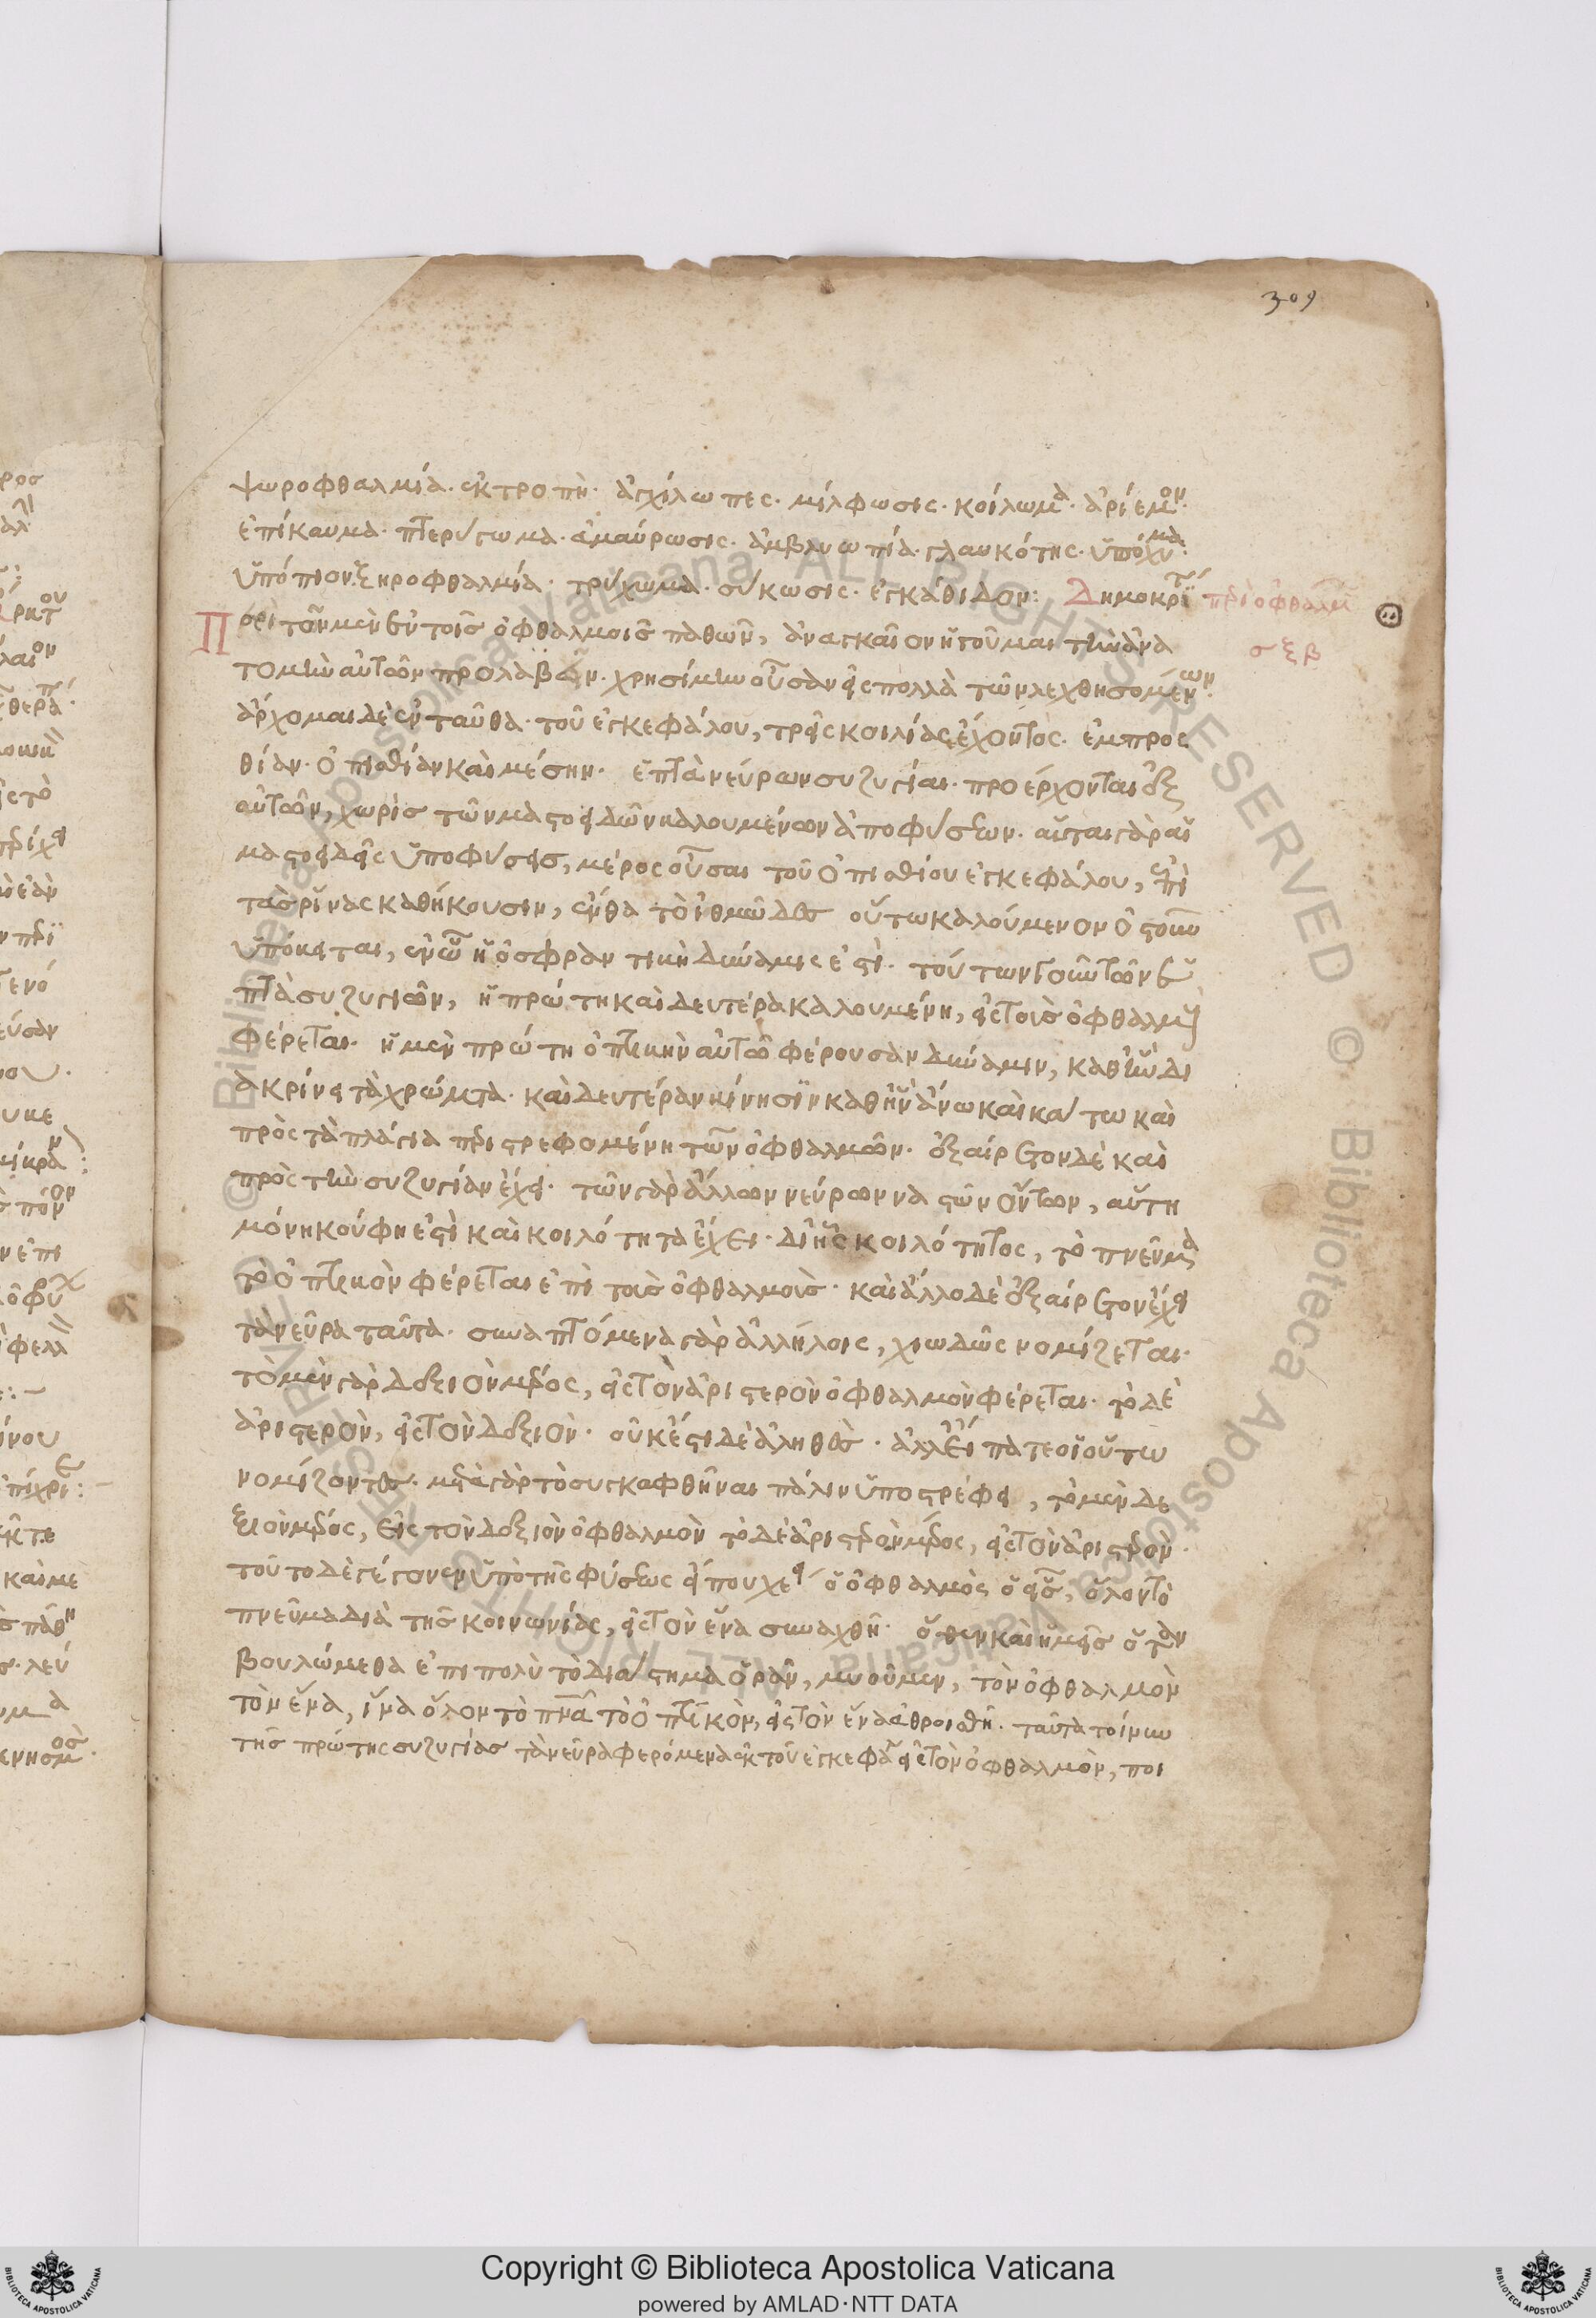 309
ψωροφθαλμία· ἐκτροπὴ· ἀγχίλωπες· μίλφωσις· κοίλωμα· ἀρίεμον·
ἐπίκαυμα· πτερύγωμα· ἀμαύρωσις· ἀμβλυωπία· γλαυκότης· ὑπόχυμα·
ὑπόπιον· ξηροφθαλμία· τρύχωμα· σύκωσις· ἐγκάθιδον: Δημοκρίτ περὶ ὀφθαλμ
σξβ
Περὶ τῶν μὲν ἐν τοῖς ὀφθαλμοῖς παθῶν, ἀναγκαῖον ἡγοῦμαι τὴν ἀνα
τομὴν αὐτῶν προλαβεῖν· χρησίμην οὖσαν εἰς πολλὰ τῶν λεχθησομένων·
ἄρχομαι δὲ ἐνταῦθα· τοῦ ἐγκεφάλου, τρεῖς κοιλίας ἔχοντος· ἐμπροσ
θίαν· ὀπισθίαν καὶ μέσην· ἑπτὰ νεύρων συζυγίαι· προέρχονται ἐξ
αὐτῶν, χωρὶς τῶν μαστοειδῶν καλουμένων ἀποφύσεων· αὗται γὰρ αἱ
μαστοειδεῖς ὑποφύσεις, μέρος οὖσαι τοῦ ὀπισθίου ἐγκεφάλου, ἐπὶ
τὰς ῥίνας καθήκουσιν, ἔνθα τὸ ἰθμῶδες οὕτω καλούμενον ὀστοῦν
ὑπόκειται, ἐν ᾧ ἡ ὀσφραντικὴ δύναμις ἐστὶ· τούτων τοίνυν τῶν ἑ
πτὰ συζυγιῶν, ἡ πρώτη καὶ δευτέρα καλουμένη, εἰς τοὺς ὀφθαλμοὺς
φέρεται· ἡ μὲν πρώτη ὀπτικὴν αὐτῶ φέρουσαν δύναμιν, καθ' ἣν δι
ακρίνει τὰ χρώματα· καὶ δευτέραν κίνησιν καθ' ἣν ἄνω καὶ κάτω καὶ
πρὸς τὰ πλάγια περιστρεφομένη τῶν ὀφθαλμῶν· ἐξαίρετον δὲ καὶ
πρὸς τὴν συζυγίαν ἔχει· τῶν γὰρ ἄλλων νεύρων ναστῶν ὄντων, αὕτη
μόνη κούφη ἐστὶ καὶ κοιλότητα ἔχει· δι' ἧς κοιλότητος, τὸ πνεῦμα
τὸ ὀπτικὸν φέρεται ἐπὶ τοὺς ὀφθαλμοὺς· καὶ ἄλλο δὲ ἐξαίρετον ἔχει
τὰ νεῦρα ταῦτα· συναπτόμενα γὰρ ἀλλήλοις, χιωδῶς νομίζεται·
τὸ μὲν γὰρ δεξιὸν μέρος, εἰς τὸν ἀριστερὸν ὀφθαλμὸν φέρεται· τὸ δὲ
ἀριστερὸν, εἰς τὸν δεξιὸν· οὐκ ἔστι δὲ ἀληθὲς·
νομίζοντες· μετὰ γὰρ τὸ συγκαφθῆναι πάλιν ὑποστρέφει, τὸ μὲν δε
ξιὸν μέρος, εἰς τὸν δεξιὸν ὀφθαλμὸν τὸ δὲ ἀριστερὸν μέρος, εἰς τὸν ἀριστερὸν·
τοῦτο δὲ γέγονεν ὑπὸ τῆς φύσεως ὁ ὀφθαλμὸς ὁ εἷς, ὅλον τὸ
πνεῦμα διὰ τῆς κοινωνίας, εἰς τὸν ἕνα συναχθῆ· ὅθεν καὶ ἡμεῖς ὅταν
βουλώμεθα ἐπιπολὺ τὸ διάστημα ὁρᾶν, μυοῦμεν, τὸν ὀφθαλμὸν
τὸν ἕνα, ἵνα ὅλον τὸ πνα τὸ ὀπτικὸν, εἰς τὸν ἕνα ἀθροισθῆ· ταῦτα τοίνυν
τῆς πρώτης συζυγίας τὰ νεῦρα φερόμενα ἐκ τοῦ ἐγκεφα εἰς τὸν ὀφθαλμὸν, ποι